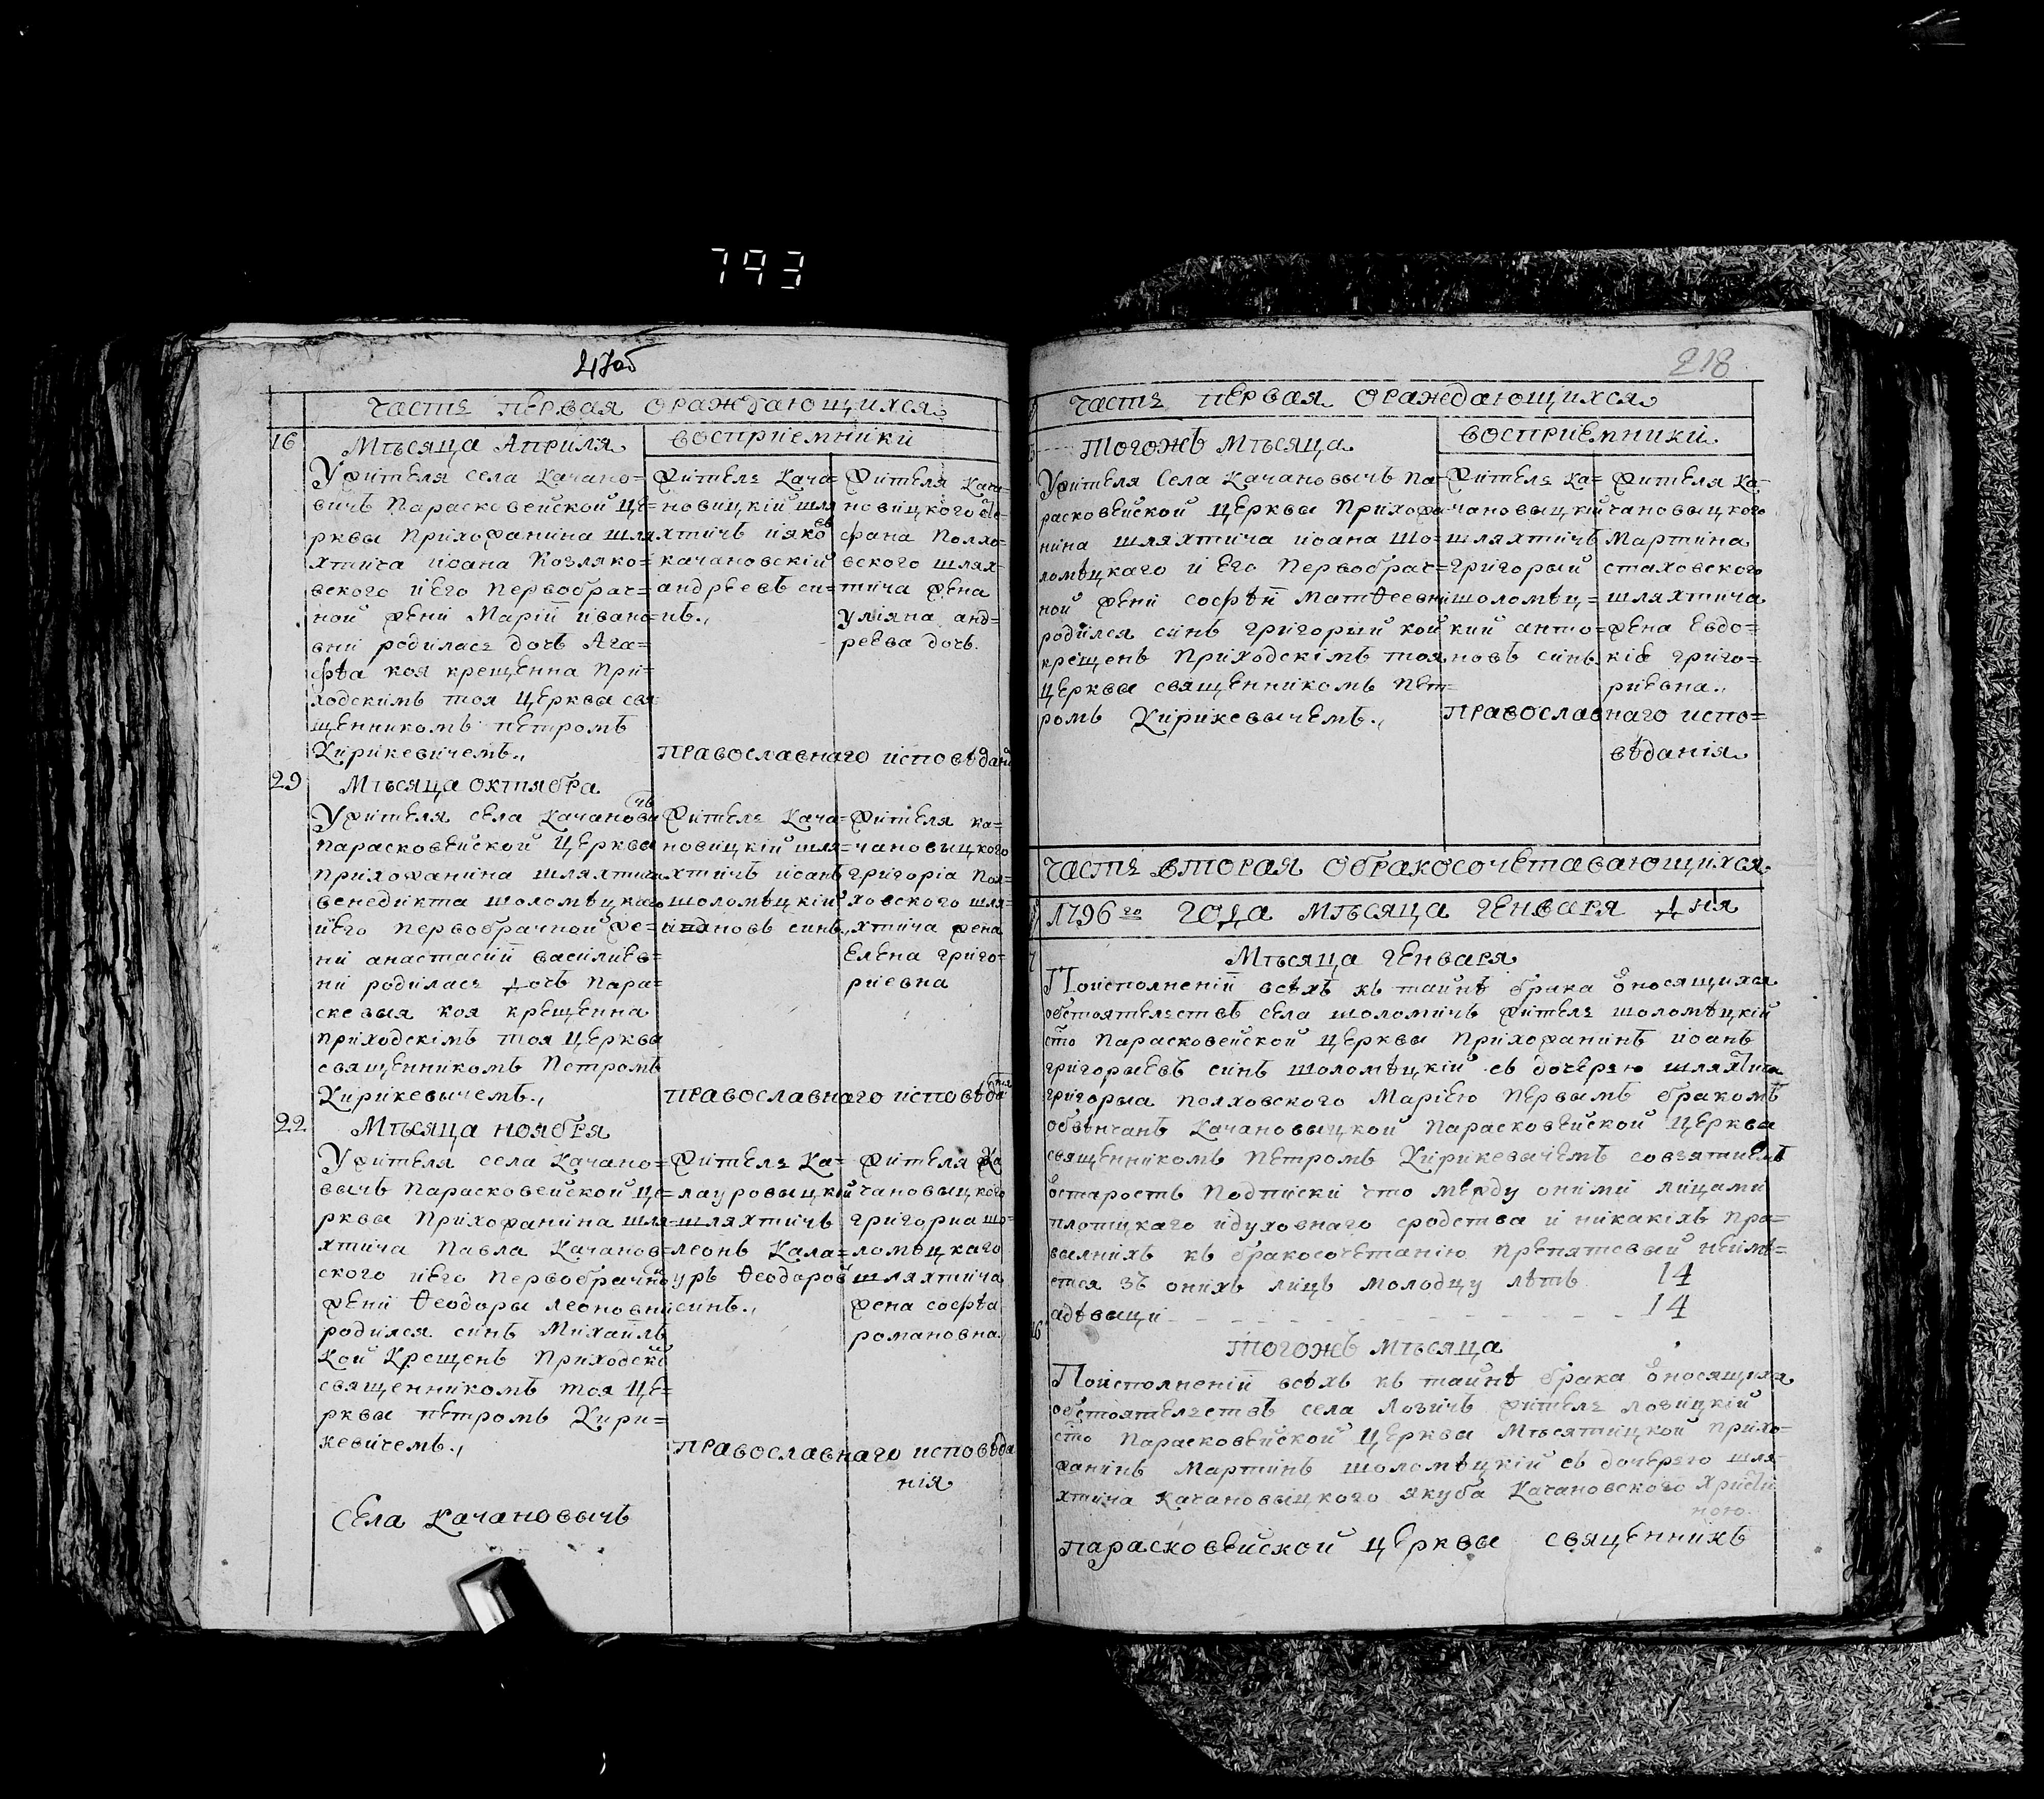 793
217об
Часть первая ораждающихся
16 Мѣсяца Априля
восприемники
Ужителя села Качано=
вичъ Параскевейской це=
рквы Прихожанина шля
хтича иоана Козляко=
вского иего Первобрач=
ной жени Марiи ивано=
вни родилась дочь Ага=
фѣа коя крещенна При=
ходскимъ тоя церквы свя
щенникомъ петромъ
Кирикевичемъ.,
житель Кача=
новицкiй шля
хтичъ ияковъ
качановскiй
андреевъ си=
нъ.,
жителя Кача=
новицкого
сфана Полхо=
вского шлях=
тича жена
улiяна анд=
реева дочь.
православнаго исповѣданi
29 Мѣсяца октября
Ужителя села Качановичъ
параскевейской церквы
прихожанина шляхтича
венедикта шоломѣцкаго
иего первобрачной же=
ни анастасiи василиев=
ни родилась дочь Пара=
скевыя коя крещенна
приходскiмъ тоя церквы
священникомъ Петромъ
Кирикевычемъ.,
житель Кача=
новицкiй шля=
хтичъ иоанъ
шоломѣцкiй
ивановъ синъ.,
жителя ка=
чановыцкого
григорiа Пол=
ховского шля=
хтича жена
Елена григо=
риевна
православнаго исповѣданiя
22 Мѣсяца ноября
Ужителя села Качано=
вычъ Параскевейской це=
рквы Прихожанина шля=
хтича Павла Качанов=
ского иего первобрачной
жени Ѳеодоры леоновни
родился синъ Михаилъ
Кой Крещенъ Приходскiмъ
священникомъ тоя це=
рквы петромъ Кири=
кевичемъ.,
житель Ка=
лауровыцкiй
шляхтичъ
леонъ Кала=
уръ Ѳеодоровъ
синъ.,
жителя Ка
чановыцкого
григориа шо=
ломѣцкаго
шляхтича
жена софѣа
романовна
православнаго исповѣда
нiя
Села Качановычъ
218
Часть первая ораждающихся
Тогожъ Мѣсяца
восприемники
Ужителя Села Качановычъ Па=
расковейской церквы Прихожа=
нина шляхтича иоана Шо=
ломѣцкаго и Его Первобрач=
ной жени софѣи Матѳеевни
родился синъ григорый кой
крещенъ Приходскiмъ тоя
церквы священникомъ Пет=
ромъ Кирикевычемъ.,
житель Ка=
чановыцкий
шляхтичъ
григорый
шоломѣц=
кий анто=
новъ синъ
жителя Ка=
чановыцкого
Мартина
стаховского
шляхтича
жена Евдо=
кiя григо=
риевна.,
православнаго испо=
вѣданiя
Часть вторая обракосочетавающихся
1796го года мѣсяца генваря дня
Мѣсяца генваря
Поисполненiи всѣхъ къ тайнѣ брака относящихся
обстоятельствъ села шоломичъ житель шоломѣцкiй
сто Парасковейской церквы Прихожанинъ иоанъ
григорыевъ синъ шоломѣцкiй съ дочерью шляхтича
григорыа полховского Марiею первымъ бракомъ
обвѣнчанъ Качановыцкой Парасковейской церквы
священникомъ петромъ Кирикевычемъ совзятиемъ
остаростъ Подписки что между оними лицами
плотскаго идуховнаго сродства и никакiхъ пра=
вилнихъ къ бракосочетанiю препятсвый неимѣ=
ется зъ онихъ лицъ молодцу лѣтъ 14
адѣвыци 14
16 Тогожъ Мѣсяца
Поисполненiи всѣхъ къ тайнѣ брака относящихся
обстоятельствъ села Лозичъ житель лозицкiй
сто Парасковейской церквы Мѣсятицкой прихо=
жанинъ Мартинъ шоломѣцкiй съ дочерею шля=
хтича Качановыцкого якуба Качановского Христи
ною
парасковейской церквы священникъ